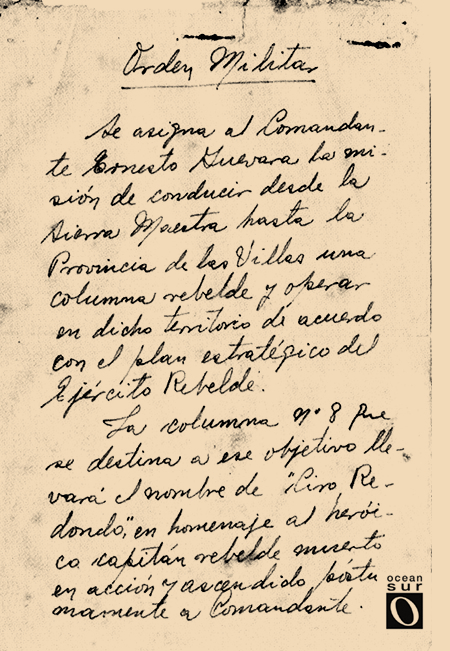 Orden Militar
Se asigna al Comandan-
te Ernesto Guevara la mi-
sión de conducir desde la
Sierra Maestra hasta la
Provincia de las Villas una
columna rebelde y operar
en dicho territorio de acuerdo
con el plan estratégico del
Ejército Rebelde.
La columna nº 8 que
se destina a ese objetivo lle-
vará el nombre de "Ciro Re-
dondo," en homenaje al herói-
co capitán rebelde muerto
en acción y ascendido póstu
mamente a Comandante.
ocean
sur